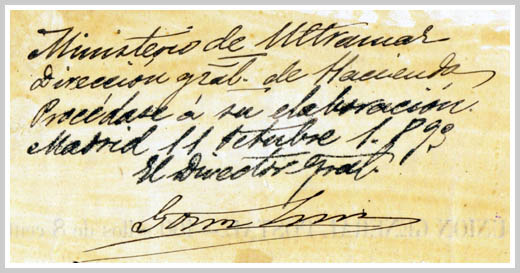 Ministerio de Ultramar
Dirección gral. de Hacienda
Procédase á su elaboración.
Madrid 11 Octubre 1.893
El Director Gral.